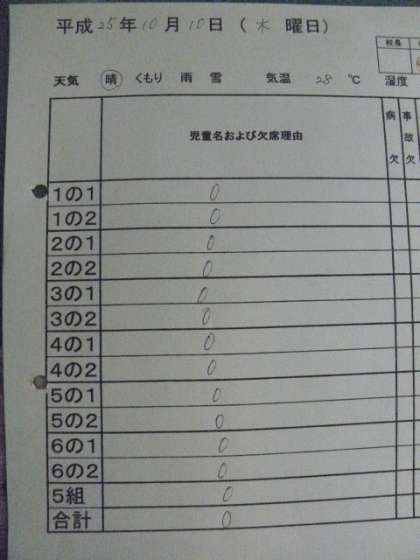 平成25年10月10日（木曜日）
校長
天気 晴 くもり 雨 雪 気温 28 ℃ 湿度
児童名および欠席理由 病欠 事故欠
1の1 0
1の2 0
2の1 0
2の2 0
3の1 0
3の2 0
4の1 0
4の2 0
5の1 0
5の2 0
6の1 0
6の2 0
5組 0
合計 0